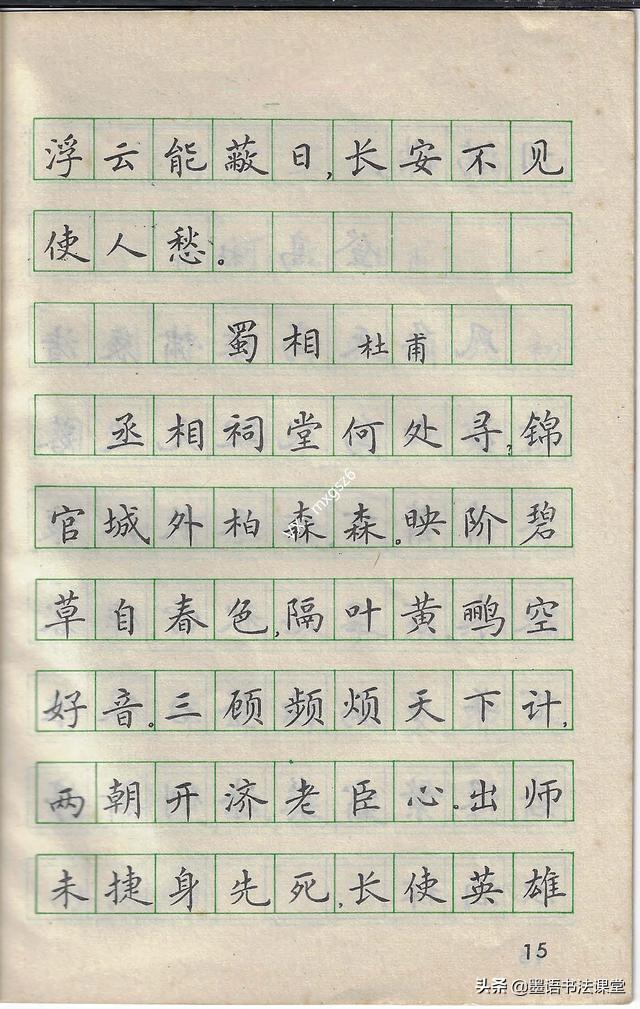 浮云能蔽日,长安不见
使人愁。
蜀相 杜甫
丞相祠堂何处寻,锦
官城外柏森森。映阶碧
草自春色,隔叶黄鹂空
好音。三顾频烦天下计,
两朝开济老臣心。出师
未捷身先死,长使英雄
15
头条 @墨语书法课堂